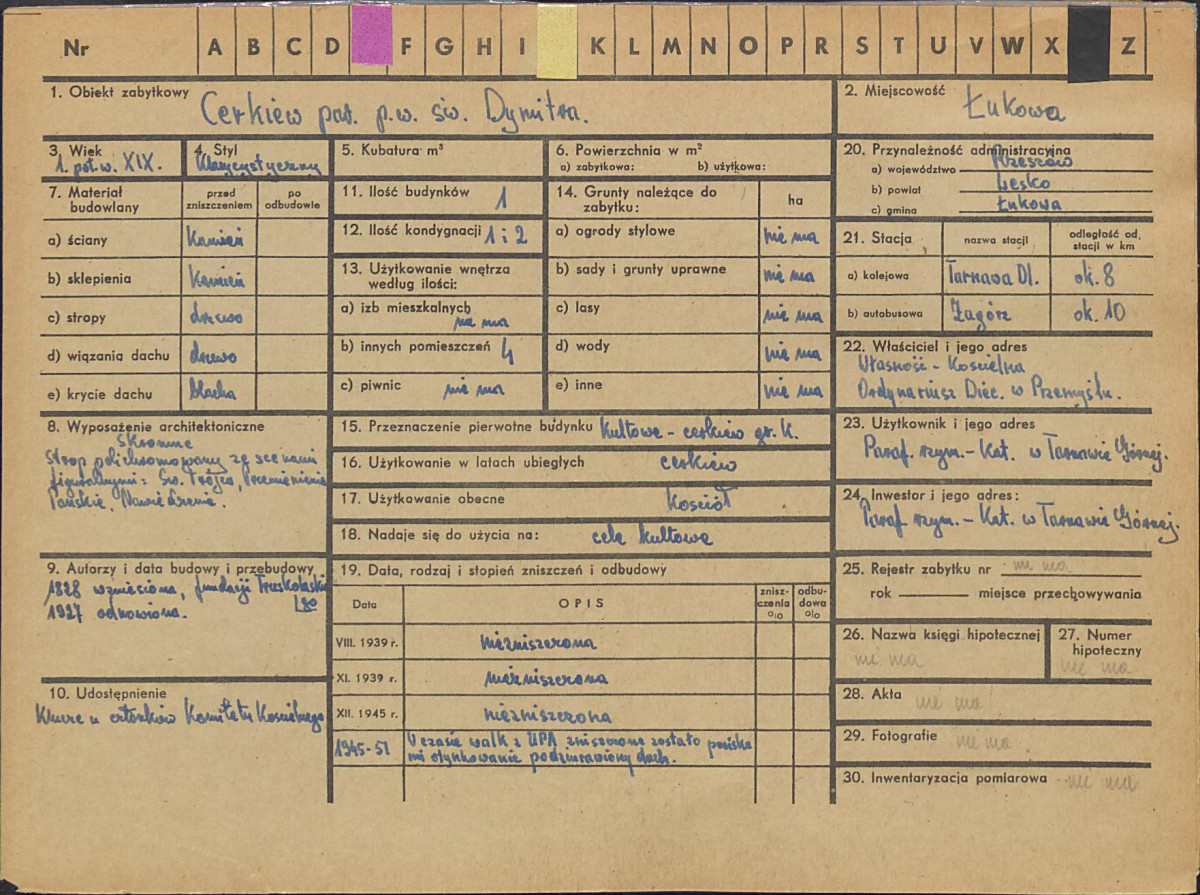 Nr A B C D F G H I K L M N O P R S T U V W X Z
1. Obiekt zabytkowy Cerkiew par. p.w. św. Dymitra.
2. Miejscowość Łukowa
3. Wiek 1. poł. w. XIX.
4. Styl Klasycystyczny
5. Kubatura m³
6. Powierzchnia w m²
a) zabytkowa: b) użytkowa:
7. Materiał budowlany
przed zniszczeniem
po odbudowie
a) ściany Kamień
b) sklepienia Kamień
c) stropy drzewo
d) wiązania dachu drzewo
e) krycie dachu blacha
8. Wyposażenie architektoniczne
Skromne
Strop polichromowany ze scenami
figuralnymi: Św. Trójca, Przemienienie
Pańskie, Nawiedzenie.
9. Autorzy i data budowy i przebudowy
1828 wzniesiona, fundacji Truskolaskie
go
1927 odnowiona.
10. Udostępnienie
Klucze u członków Komitetu Kościelnego
11. Ilość budynków 1
12. Ilość kondygnacji 1 i 2
13. Użytkowanie wnętrza
według ilości:
a) izb mieszkalnych
nie ma
b) innych pomieszczeń 4
c) piwnic nie ma
14. Grunty należące do
zabytku:
ha
a) ogrody stylowe nie ma
b) sady i grunty uprawne nie ma
c) lasy nie ma
d) wody nie ma
e) inne nie ma
15. Przeznaczenie pierwotne budynku Kultowe - cerkiew gr. K.
16. Użytkowanie w latach ubiegłych cerkiew
17. Użytkowanie obecne Kościół
18. Nadaje się do użycia na: cele kultowe
19. Data, rodzaj i stopień zniszczeń i odbudowy
Data OPIS zniszczenia % odbudowa %
VIII. 1939 r. niezniszczona
XI. 1939 r. niezniszczona
XII. 1945 r. niezniszczona
1945-51 W czasie walk z UPA zniszczone zostało pociska
mi otynkowanie podziurawiony dach.
20. Przynależność administracyjna
a) województwo Rzeszów
b) powiat Lesko
c) gmina Łukowa
21. Stacja nazwa stacji odległość od. stacji w km
a) kolejowa Tarnawa Dl. ok. 8
b) autobusowa Zagórz ok. 10
22. Właściciel i jego adres
Własność - Kościelna
Ordynariusz Diec. w Przemyślu.
23. Użytkownik i jego adres
Paraf. rzym. - Kat. w Tarnawie Górnej.
24. Inwestor i jego adres:
Paraf. rzym. - Kat. w Tarnawie Górnej.
25. Rejestr zabytku nr nie ma
rok miejsce przechowywania
26. Nazwa księgi hipotecznej
nie ma
27. Numer
hipoteczny
nie ma
28. Akta nie ma
29. Fotografie nie ma
30. Inwentaryzacja pomiarowa nie ma